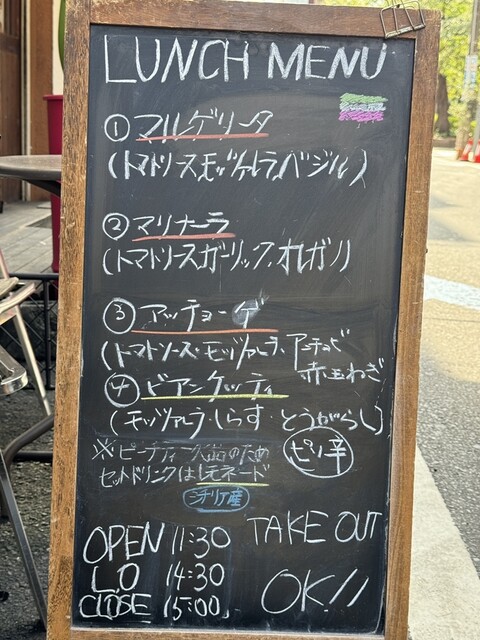 LUNCH MENU
① マルゲリータ
(トマトソース・モッツァレラ、バジル)
② マリナーラ
(トマトソース ガーリック、オレガノ)
③ アッチョーゲ
(トマトソース・モッツァレラ、アンチョビ
赤玉ねぎ
④ ビアンケッティ
(モッツァレラ・しらす・とうがらし)
※ピーチティー のため
ピリ辛
セットドリンクはレモネード
シチリア産
TAKE OUT
OK!!
OPEN 11:30
L.O 14:30
CLOSE 15:00